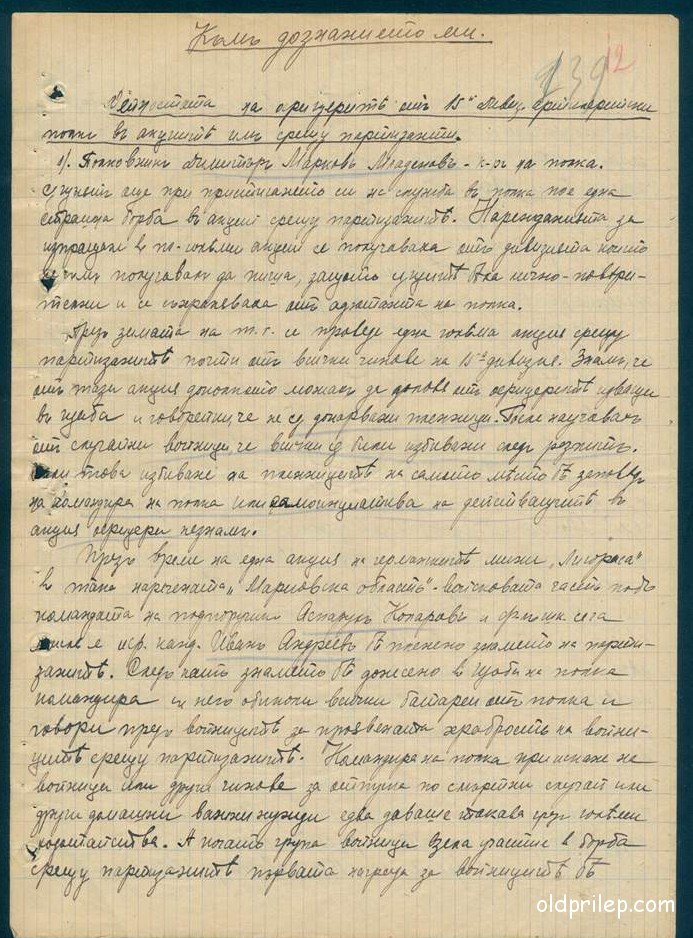 Към дознанието ми.
139 12
Дейността на офицерите от 15и дивиз. артилерийски
полк в акциите им срещу партизаните.
1/. Полковник Димитър Марковъ Младеновъ - к-ръ на полка.
Същият още при пристигането си на служба в полка пое една
страшна борба в акции срещу партизанитѣ. Нарежданията за
изпращане в по-големи акции се получаваха отъ дивизията които
не съмъ получавалъ да пиша, защото същитѣ бѣха лично-повери-
телни и се съхраняваха отъ адютанта на полка.
Презъ зимата на т.г. се проведе една голѣма акция срещу
партизанитѣ почти отъ всички чинове на 15та дивизия. Знамъ, че
отъ тази акция доколкото можахъ да доловя отъ офицеритѣ идващи
в щаба и говорейки че не са докарвани пленници. После научавахъ
отъ случайни войници, че всички са били избивани след
това избиване на пленницитѣ на самото мѣсто бѣ заповѣд
на командира на полка или самоинициатива на действащитѣ в
акция офицери незнамъ.
Презъ време на една акция на германскитѣ мини „Лигораса"
в тъка наречената „Мариовска область" - войсковата часть подъ
командата на подпоручикъ Копаровъ и сега
е канд. Иванъ Андреевъ бѣ пленено знамето на парти-
занитѣ. След като знамето бѣ донесено в щаба на полка
командира с него обиколи всички батареи отъ полка и
говори предъ войницитѣ за проявената храбрость на войни-
цитѣ срещу партизанитѣ. Командира на полка при искане на
войници или други чинове за отпуска по смъртни случаи или
други домашни важни нужди едва даваше такава след големи
ходатайства. А когато група войници взела участие в борба
срещу партизанитѣ първата награда за войницитѣ бѣ
oldprilep.com